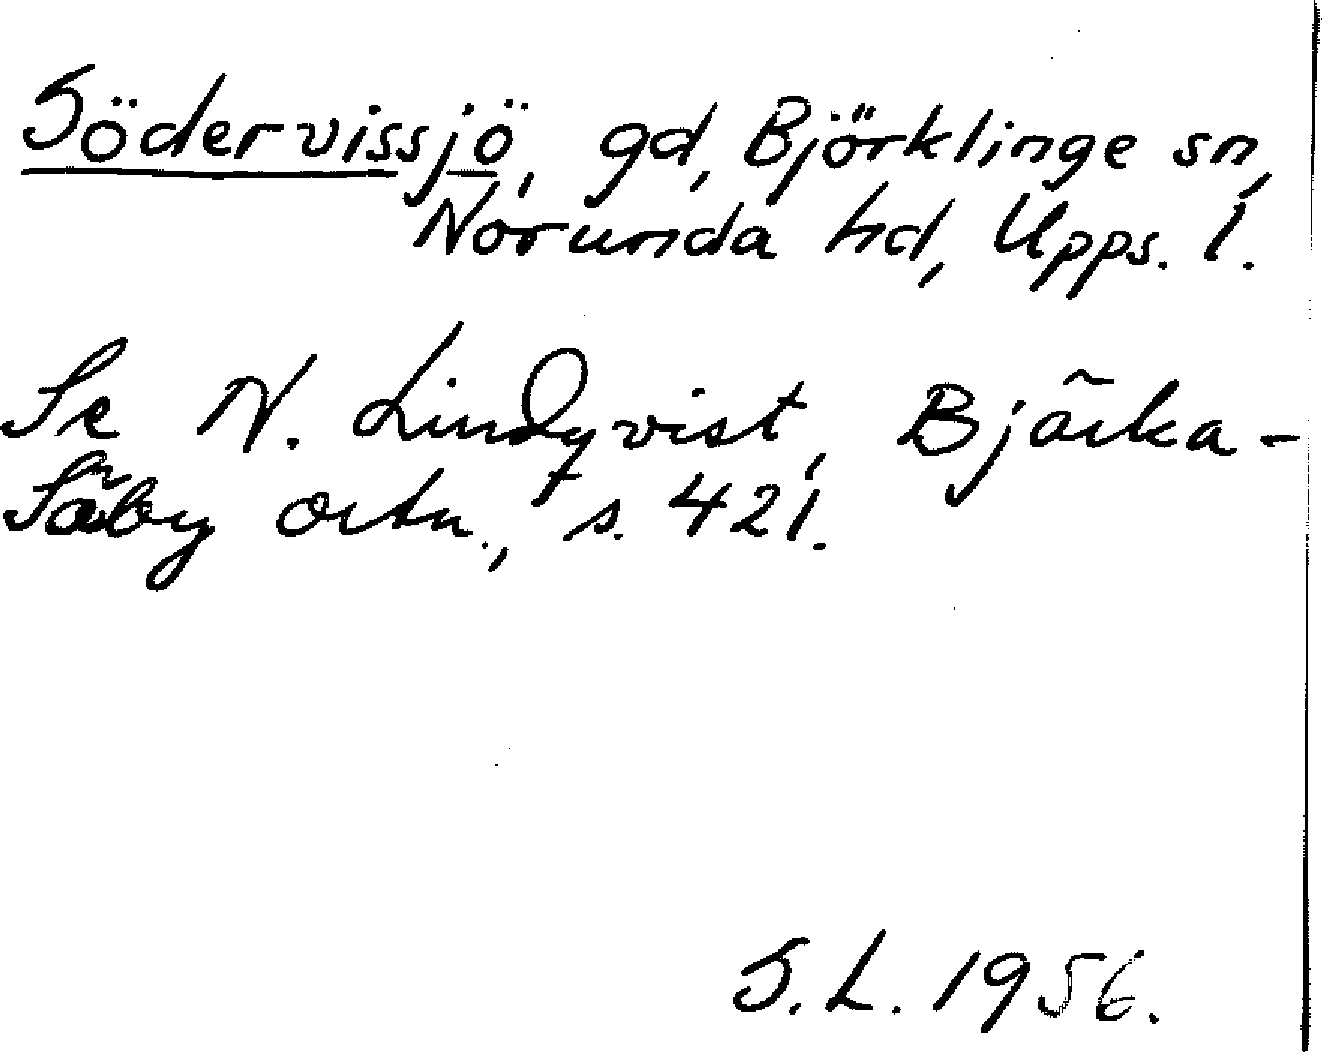 Södervissjö, gd, Björklinge sn,
Norunda hd, Upps. l.
Se N. Lindqvist, Bjärka-
Säby ortn., s. 421.
S. L. 1956.